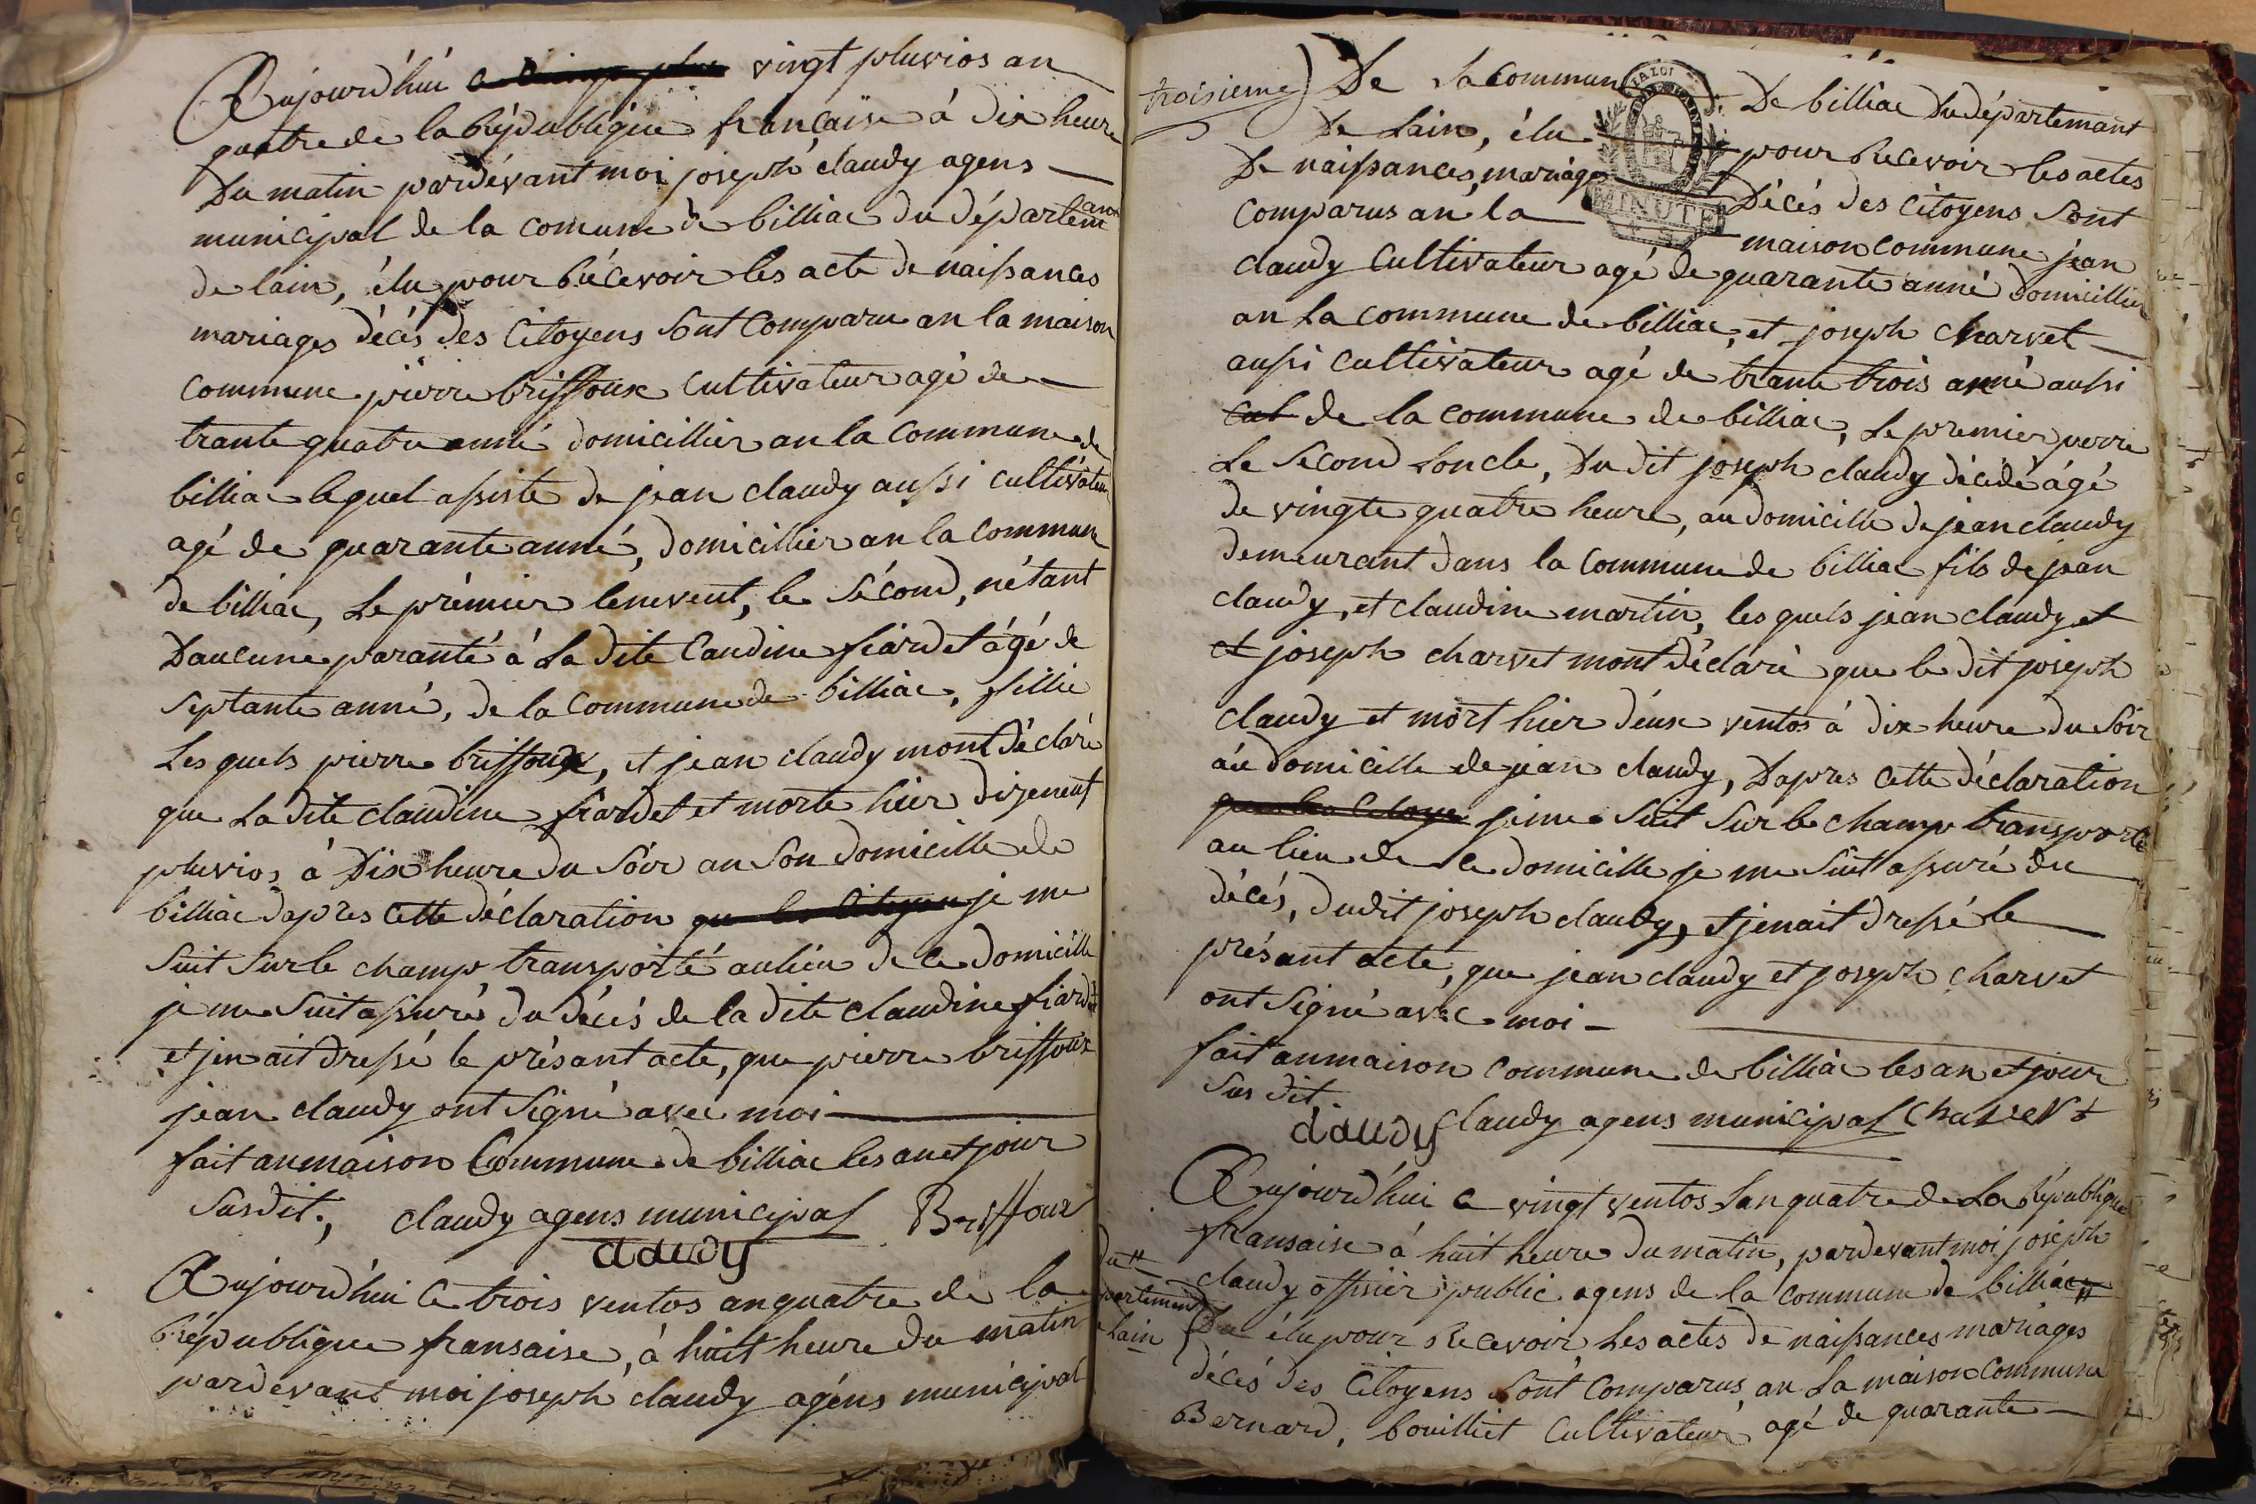 Aujourd'hui vingt pluvios an
quatre de la République françaïse à dix heure
Du matin pardévant moi joseph claudy agens
municipal de la comune de billiac du départemant
de lain, élu pour Récevoir les acte de naissances
mariages décés des Citoyens sont Comparu an la maison
commune pierre briffoux cultivateur agé de
trante quatre anné domicillier an la Commune de
billiac lequel assisté de jean claudy aussi cultivateur
agé de quarante anné, domicillier an la commune
de billiac, Le prémier lenevent, le sécond, nétant
Daucune paranté à La dite Caudine fiardet âgé de
septante anné, de la Commune de billiac, fillie
Les quels pierre briffoux, et jean claudy mont déclaré
que La dite claudine fiardet et morte hier dizeneuf
pluvios à Dix heure du soir an son domicille de
billiac daprès cette déclaration que les Citoyen je me
suit sur le champ transporté au lieu de ce domicille
je me suit assuré du décés de la dite claudine fiardet
et jen ait dressé le présant acte, que pierre briffoux
jean claudy ont signé avec moi
fait an maison Commune de billiac les an et jour
susdit., claudy agens municipal Briffoux
claudy
Aujourd'hui Ce trois ventos an quatre de la
République fransaise, à huit heure du matin
pardevant moi joseph claudy agéns municipal
troisieme) De La commune De billiac Du département
De Lain, élu pour Recevoir les actes
De naissances, mariages Décés des Citoyens sont
comparus an la maison commune jean
claudy Cultivateur agé de quarante anné domicillier
an La commune de billiac, et joseph charvet
aussi cultivateur agé de trante trois anné aussi
cul de la commune de billiac, Le premier perre
Le sécond Loncle, Du dit joseph claudy décédé âgé
de vingte quatre heure, au domicille de jean claudy
demeurant dans la commune de billiac fils de jean
claudy, et claudine martin, les quels jean claudy et
et joseph charvet mont déclaré que le dit joseph
claudy et mort hier deux ventos à dix heure du soir
au domicille de jean claudy, Dapres cette déclaration
je me suit sur le champ transporté
au lieu de ce domicille je me suit assuré du
décés, dudit joseph claudy, et jenait dressé le
présant acte, que jean claudy et joseph charvet
ont signé avec moi
fait an maison commune de billiac les an et jour
sus dit
claudy claudy agens municipal Charvet
Aujourd'hui ce vingt ventos Lan quatre de La République
fransaise à huit heure du matin, pardevant moi joseph
claudy offisier public agens de la commune de billiac
Du élu pour Recevoir Les actes de naissances mariages
décés des Citoyens sont comparus an La maison commune
Bernard, bouilliet Cultivateur agé de quarante
du
partement
Lain
MINUTE
LA LOI